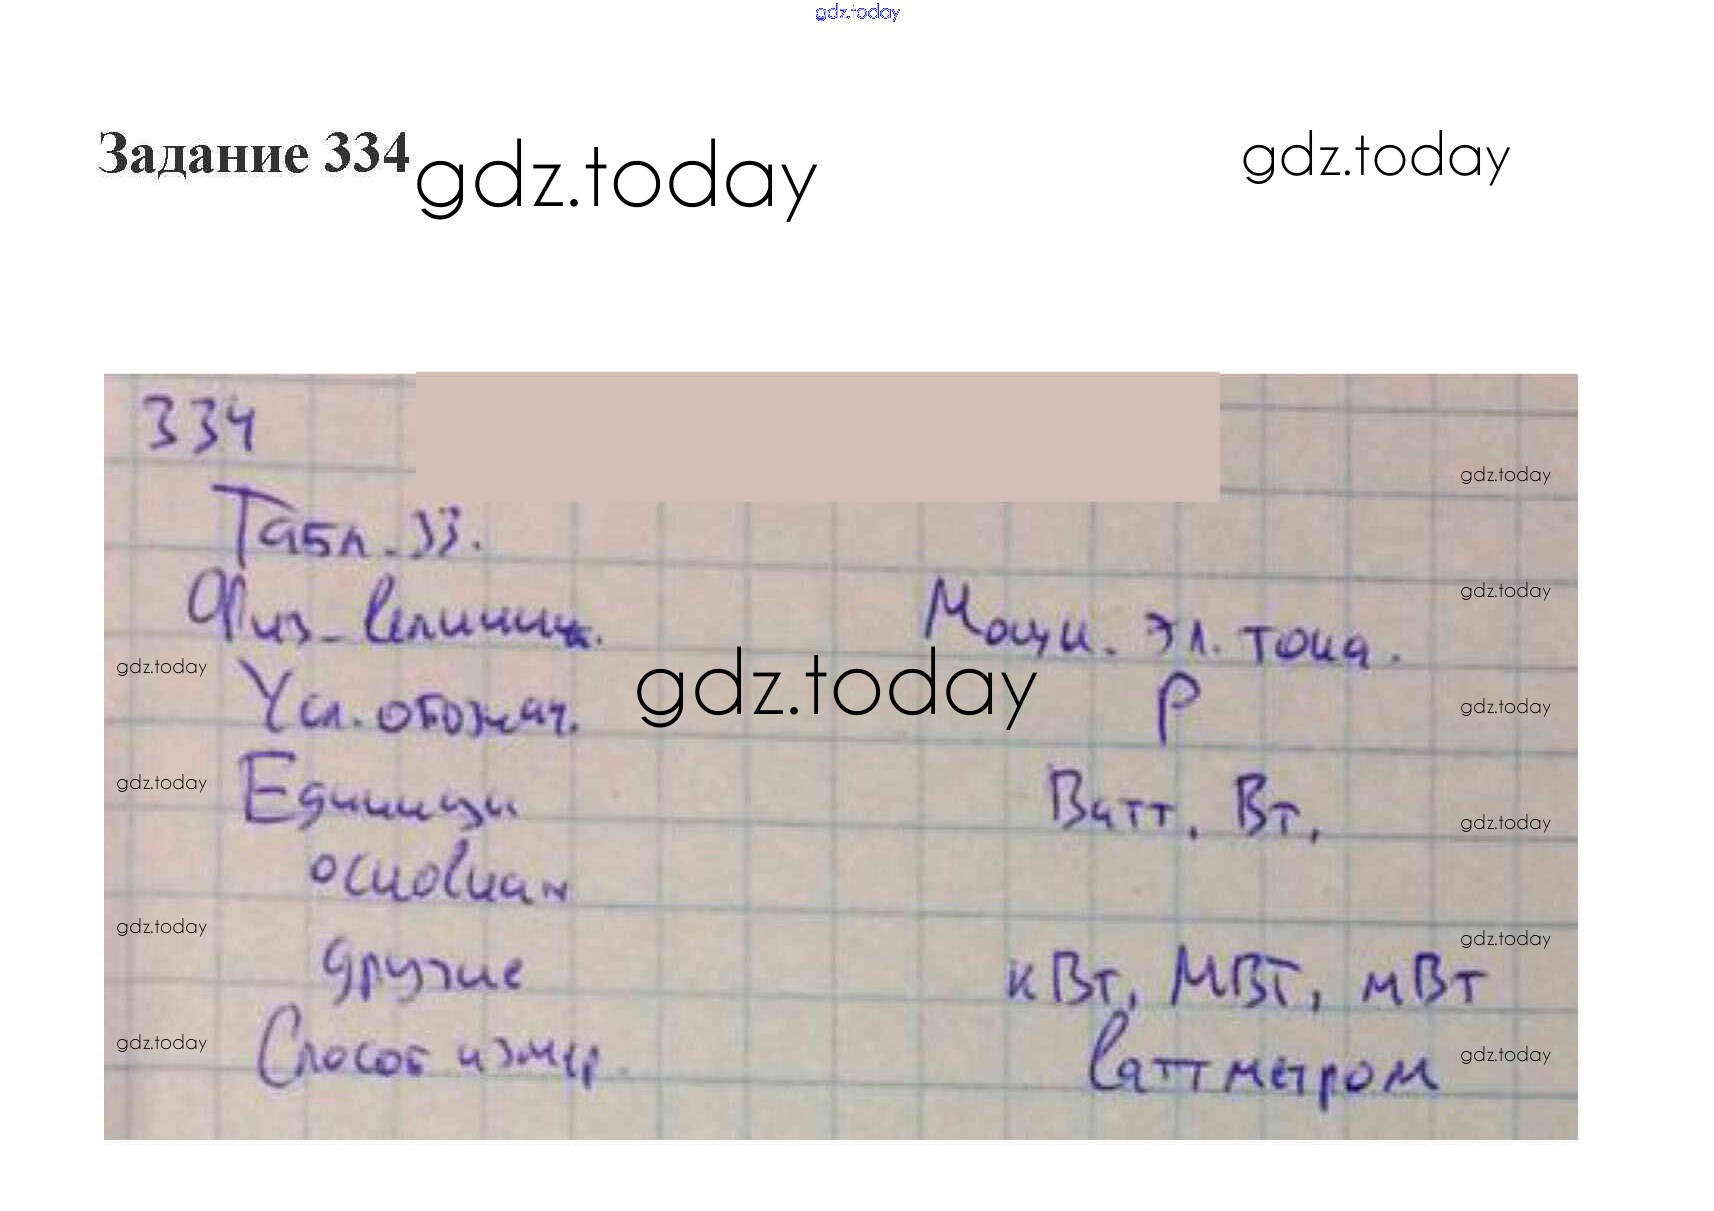 gdz.today
Задание 334 gdz.today gdz.today
334
gdz.today
Табл. 33.
Физ. величина. Мощн. эл. тока. gdz.today
gdz.today gdz.today
Усл. обознач. P gdz.today
gdz.today Единицы Ватт. Вт, gdz.today
основная
gdz.today gdz.today
другие кВт, МВт, мВт
gdz.today Способ измер. ваттметром gdz.today